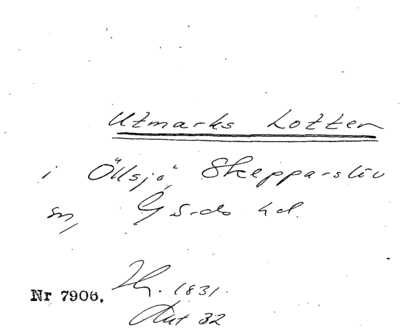 Utmarks Lotter
i Öllsjö, Skepparslöv
sn, Gärds hd.
Nr 7906. Hg. 1831.
Aut 32